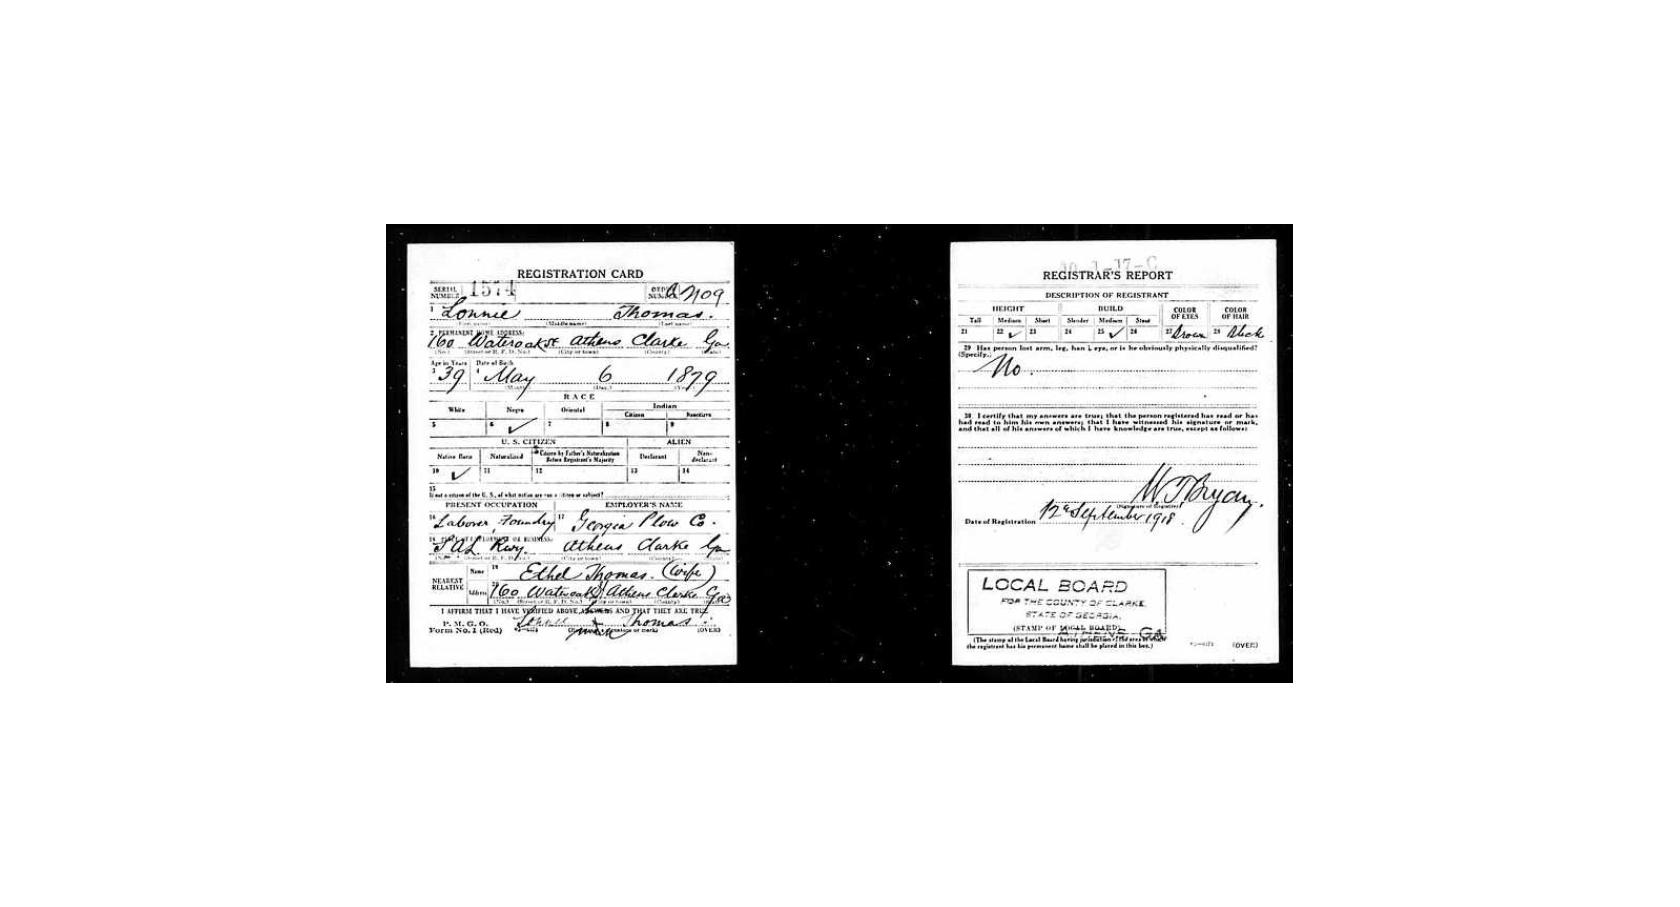 REGISTRATION CARD
SERIAL NUMBER 1574 ORDER NUMBER A2109
1 Lonnie Thomas.
(First name) (Middle name) (Last name)
2 PERMANENT HOME ADDRESS:
160 Wateroak St Athens Clarke Ga
(No.) (Street or R. F. D. No.) (City or town) (County) (State)
Age in Years Date of Birth
3 39 4 May 6 1879
(Month) (Day) (Year)
RACE
White Negro Oriental Indian
Citizen Noncitizen
5 6 ✓ 7 8 9
U. S. CITIZEN ALIEN
Native Born Naturalized Citizen by Father's Naturalization Before Registrant's Majority Declarant Non-declarant
10 ✓ 11 12 13 14
15
If not a citizen of the U. S., of what nation are you a citizen or subject?
PRESENT OCCUPATION EMPLOYER'S NAME
16 Laborer, Foundry 17 Georgia Plow Co.
18 PLACE OF EMPLOYMENT OR BUSINESS:
SAL Rwy. Athens Clarke Ga
(No.) (Street or R. F. D. No.) (City or town) (County) (State)
NEAREST RELATIVE Name 19 Ethel Thomas. (wife)
Address 20 160 Wateroak Athens Clarke Ga
(No.) (Street or R. F. D. No.) (City or town) (County) (State)
I AFFIRM THAT I HAVE VERIFIED ABOVE ANSWERS AND THAT THEY ARE TRUE
P. M. G. O.
Form No. 1 (Red) Lonnie Thomas
mark (Registrant's signature or mark) (OVER)
REGISTRAR'S REPORT
DESCRIPTION OF REGISTRANT
HEIGHT BUILD COLOR OF EYES COLOR OF HAIR
Tall Medium Short Slender Medium Stout
21 22 ✓ 23 24 25 ✓ 26 27 Brown 28 Black
29 Has person lost arm, leg, hand, eye, or is he obviously physically disqualified?
(Specify.)
No.
30 I certify that my answers are true; that the person registered has read or has
had read to him his own answers; that I have witnessed his signature or mark,
and that all of his answers of which I have knowledge are true, except as follows:
W. T. Bryan.
(Signature of Registrar)
Date of Registration 12 September 1918.
LOCAL BOARD
FOR THE COUNTY OF CLARKE,
STATE OF GEORGIA,
(STAMP OF LOCAL BOARD)
ATHENS GA
(The stamp of the Local Board having jurisdiction of the area in which
the registrant has his permanent home shall be placed in this box.)
(OVER)